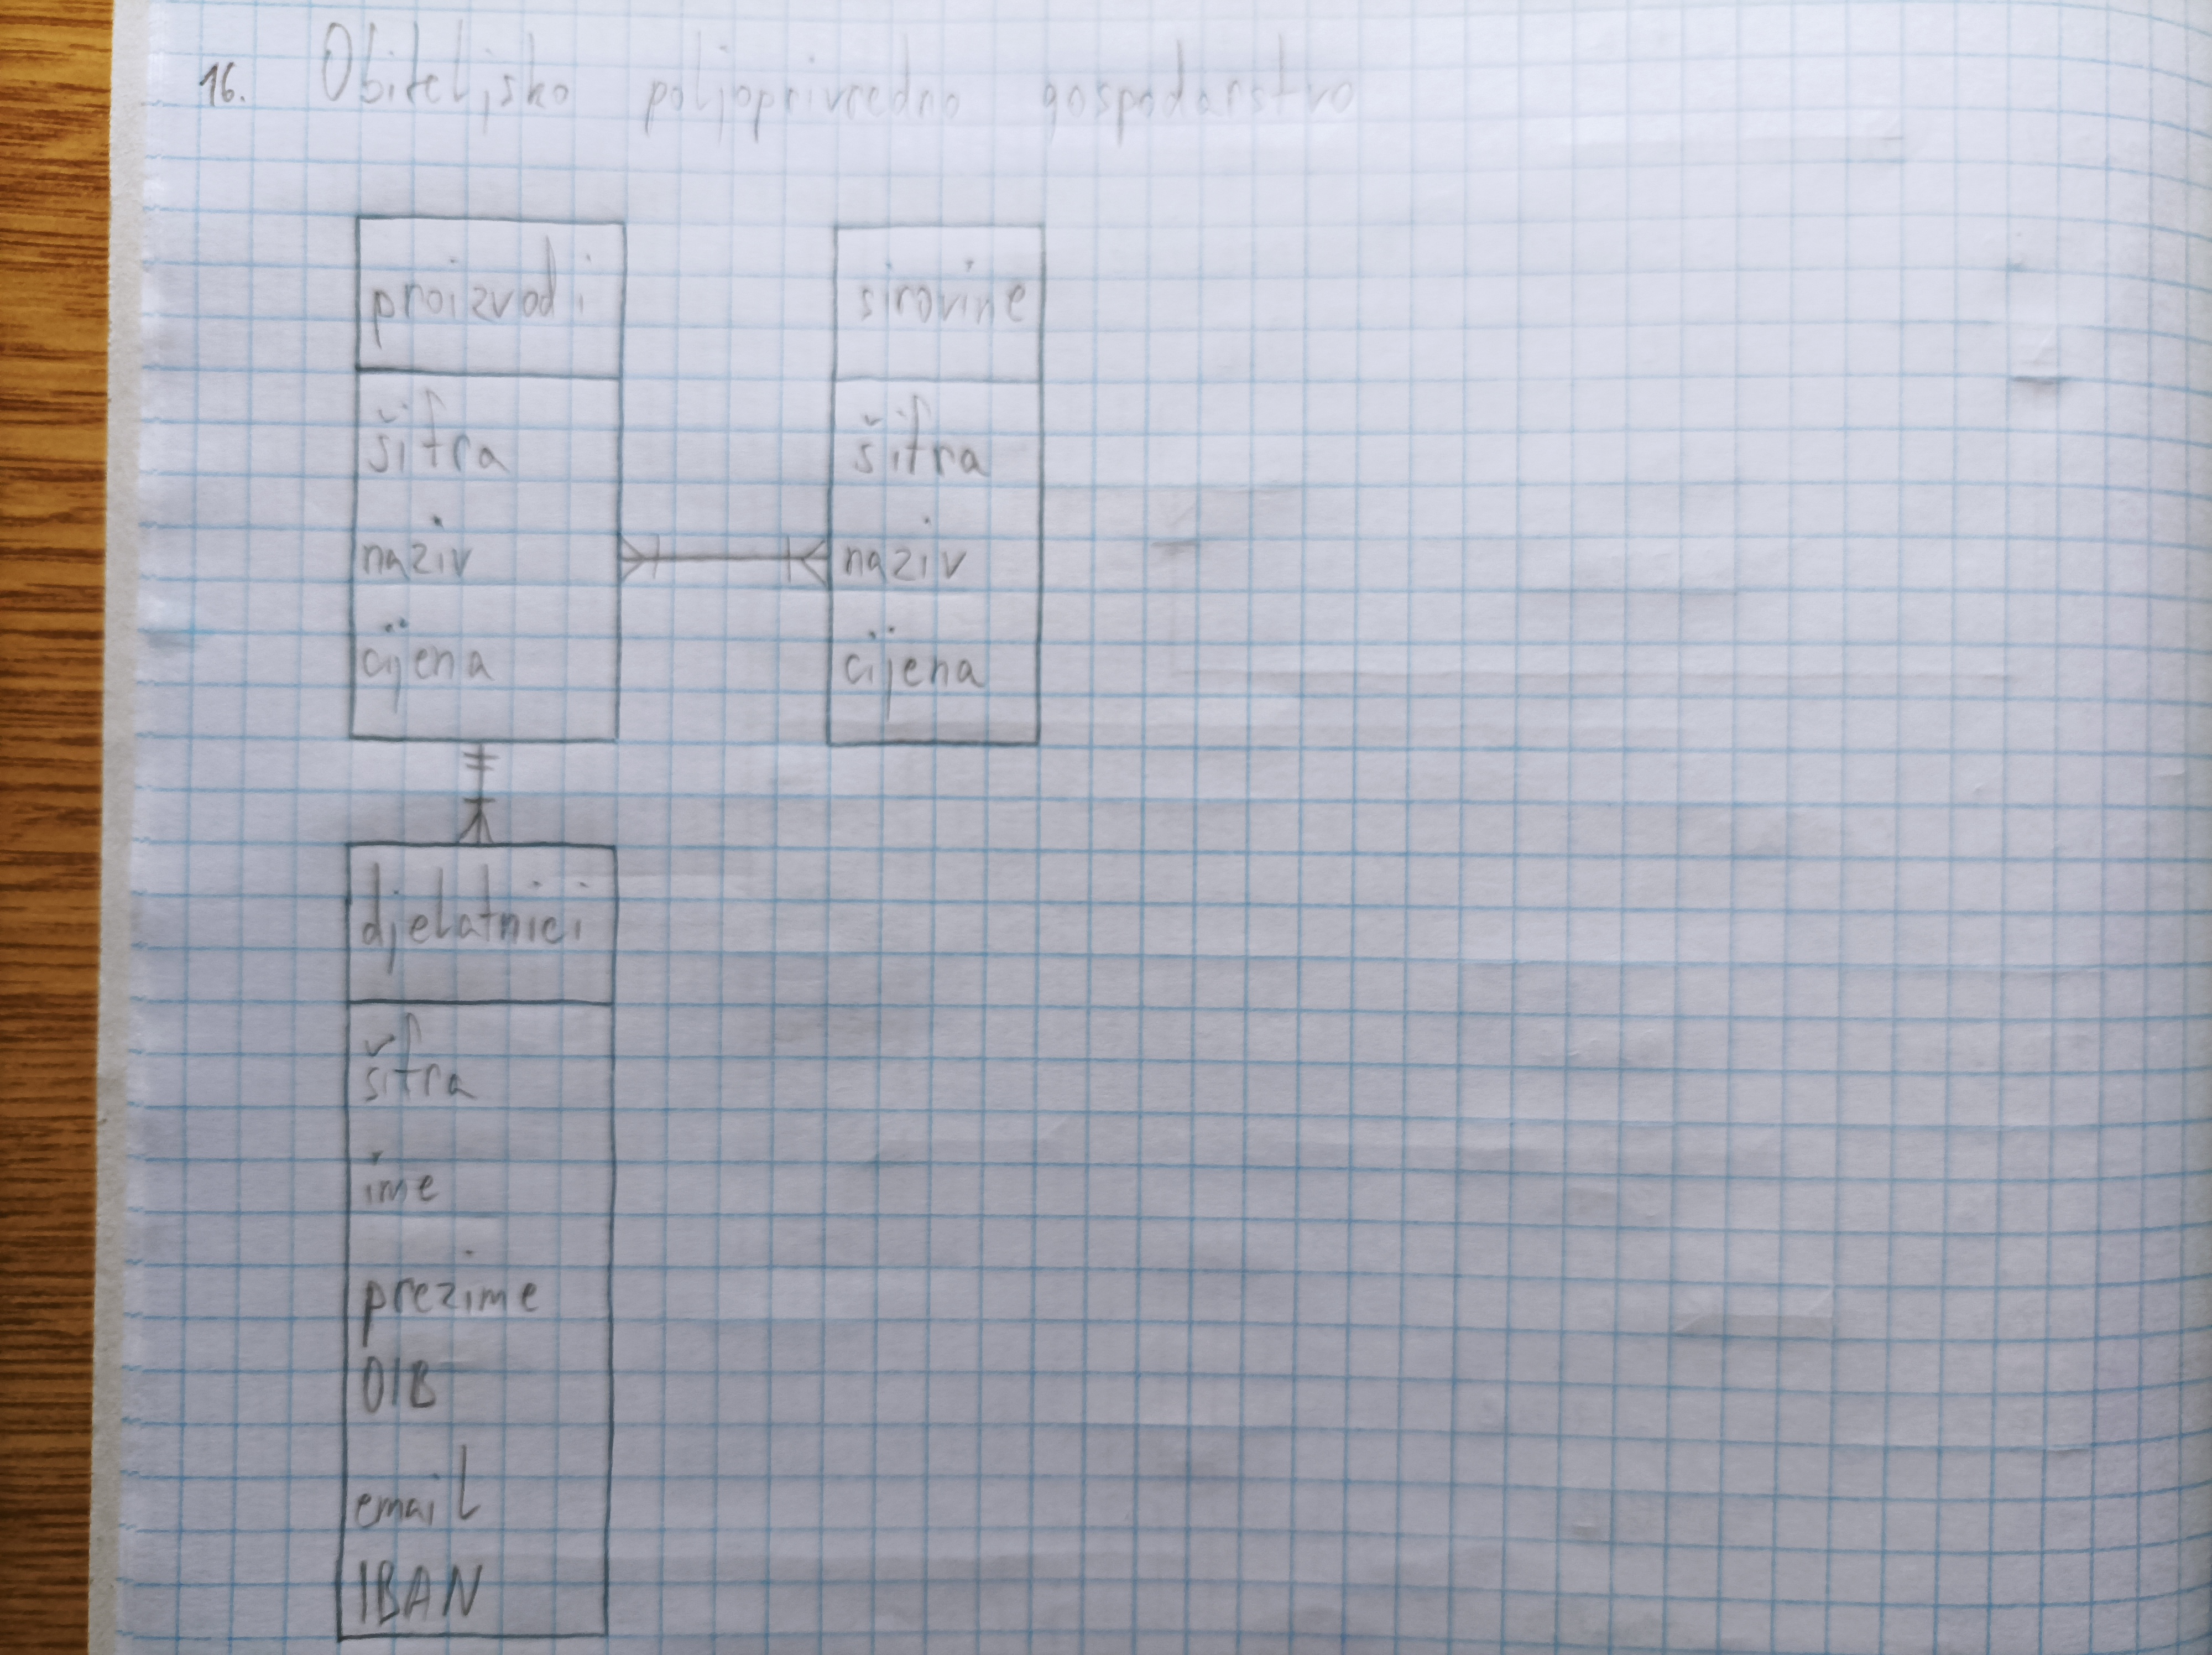 16. Obiteljsko poljoprivredno gospodarstvo
proizvodi
šifra
naziv
cijena
sirovine
šifra
naziv
cijena
djelatnici
šifra
ime
prezime
OIB
email
IBAN